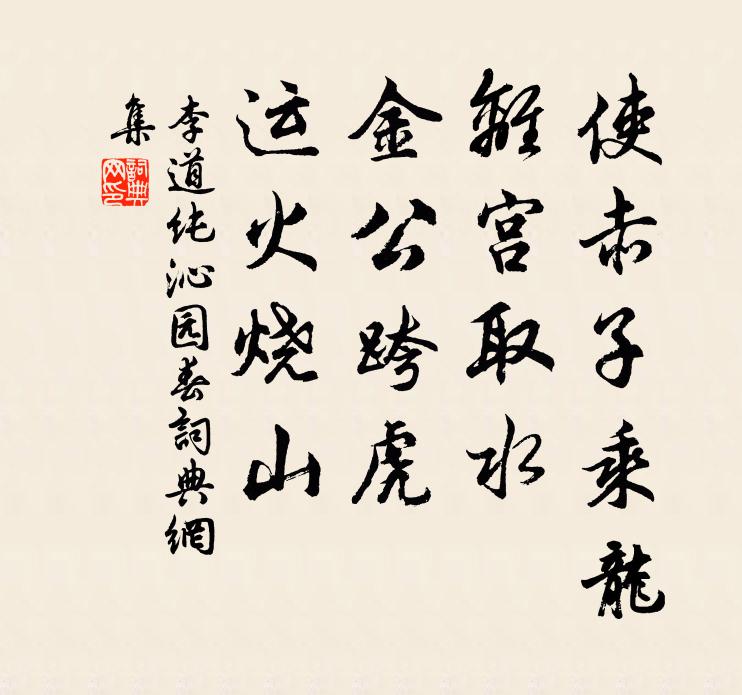 使赤子乘龍
離宫取水
金公跨虎
运火烧山
李道纯沁园春詞典網
集
詞典
网印